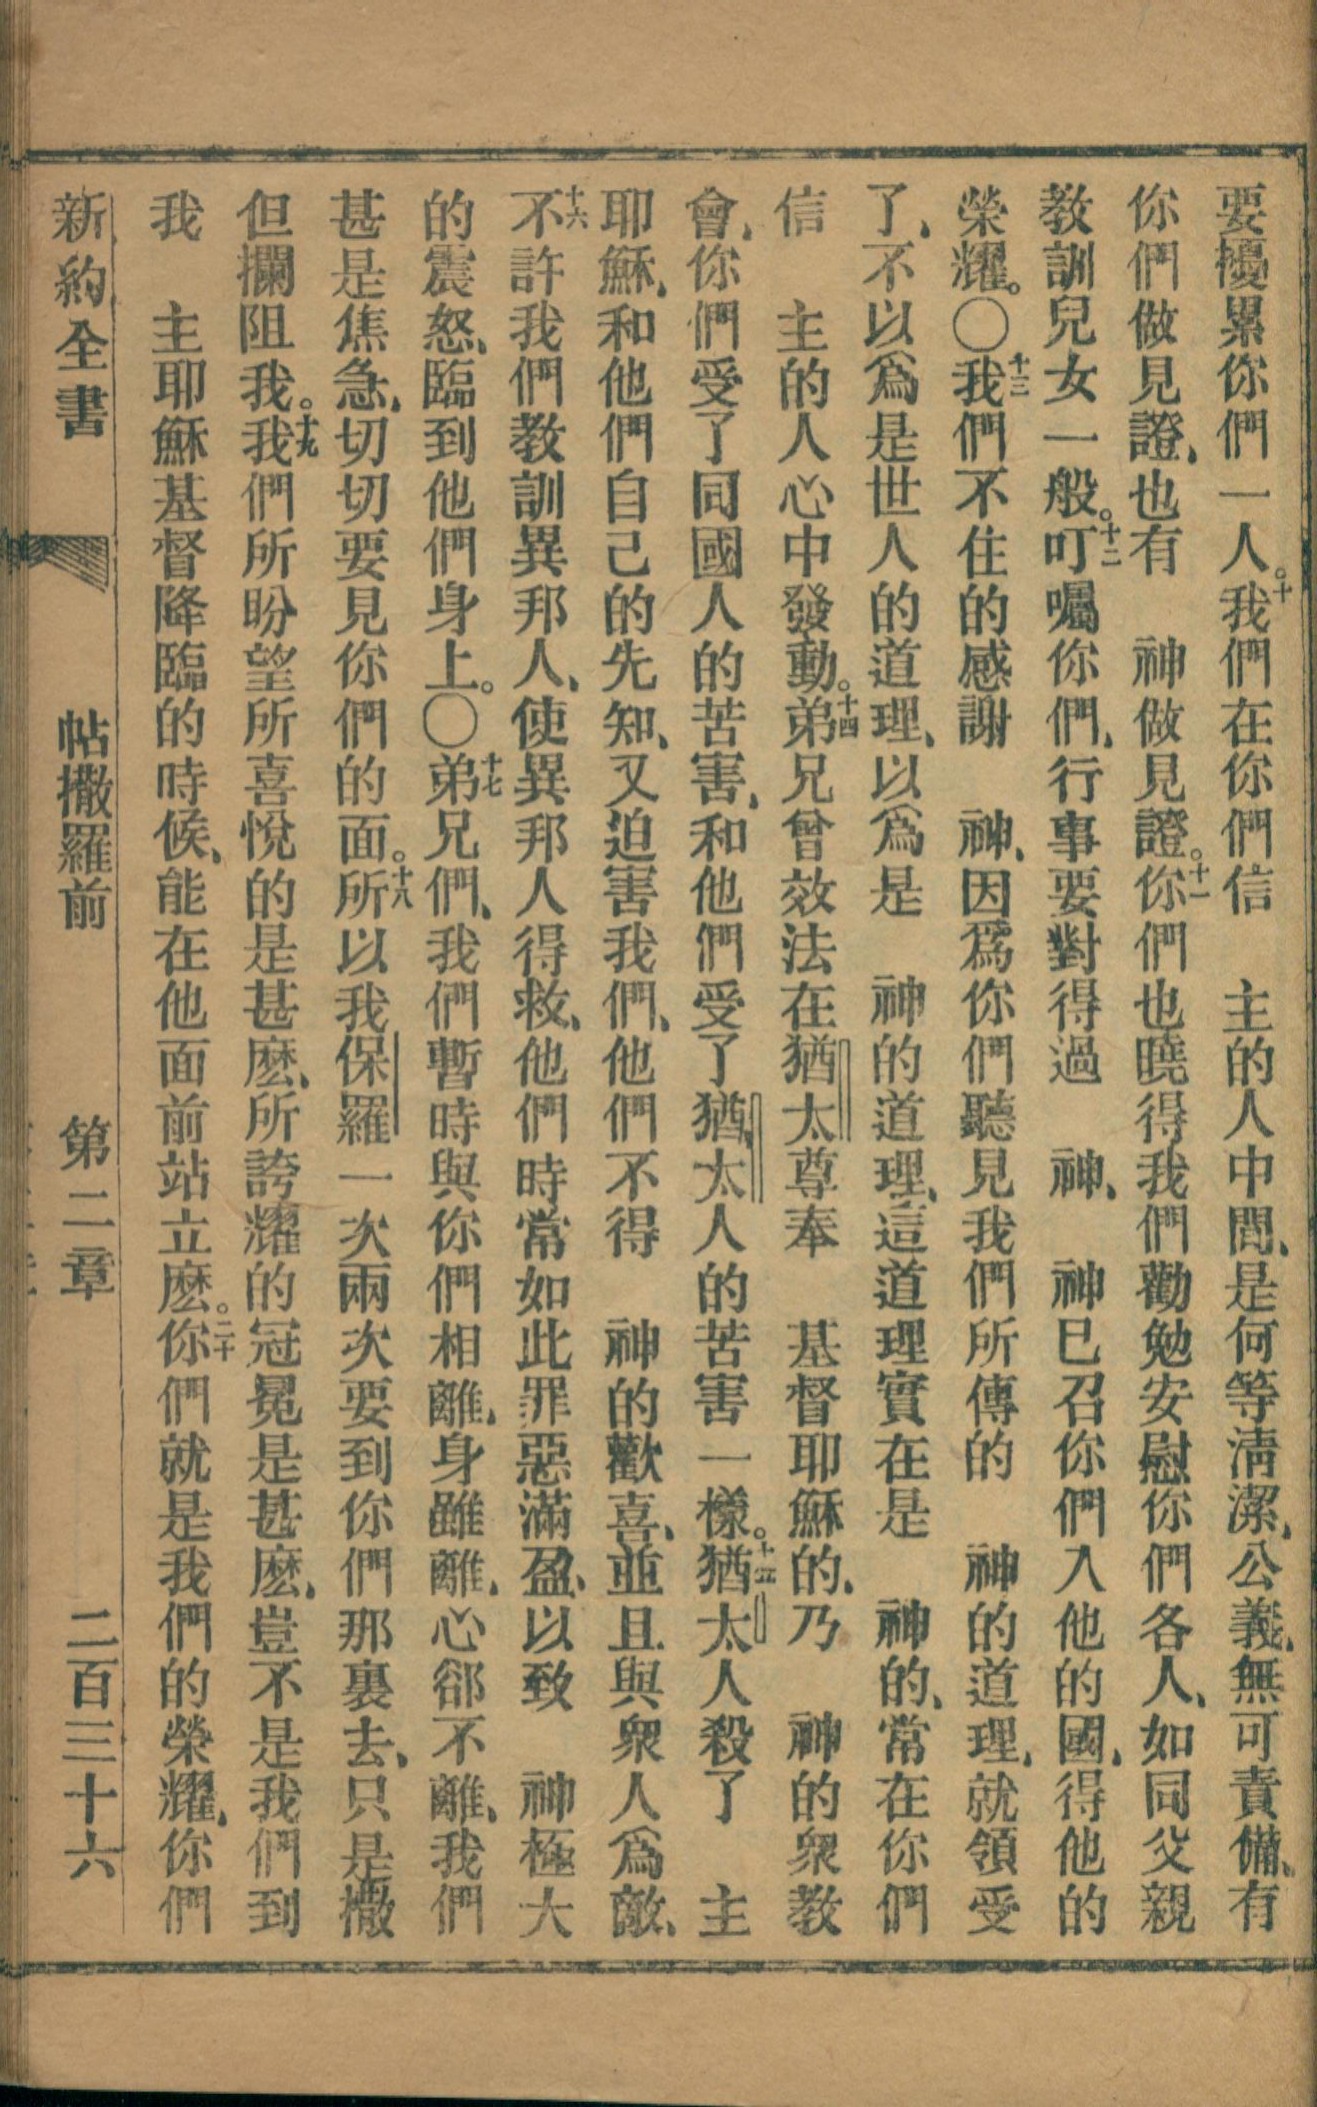 要擾累你們一人。十我們在你們信　主的人中間、是何等淸潔、公義、無可責備、有
你們做見證、也有　神做見證。十一你們也曉得我們勸勉安慰你們各人、如同父親
教訓兒女一般。十二叮囑你們、行事要對得過　神、　神已召你們入他的國、得他的
榮耀。〇十三我們不住的感謝　神、因爲你們聽見我們所傳的　神的道理、就領受
了、不以爲是世人的道理、以爲是　神的道理、這道理實在是　神的、常在你們
信　主的人心中發動。十四弟兄曾效法在猶太尊奉　基督耶穌的、乃　神的衆教
會、你們受了同國人的苦害、和他們受了猶太人的苦害一樣。十五猶太人殺了　主
耶穌、和他們自己的先知、又迫害我們、他們不得　神的歡喜、並且與衆人爲敵、
十六不許我們教訓異邦人、使異邦人得救、他們時常如此罪惡滿盈、以致　神極大
的震怒、臨到他們身上。〇十七弟兄們、我們暫時與你們相離、身雖離、心郤不離、我們
甚是焦急、切切要見你們的面。十八所以我保羅一次兩次要到你們那裏去、只是撒
但攔阻我。十九我們所盼望所喜悅的是甚麽、所誇耀的冠冕是甚麽、豈不是我們到
我　主耶穌基督降臨的時候、能在他面前站立麽。二十你們就是我們的榮耀、你們
新約全書　帖撒羅前　第二章　二百三十六